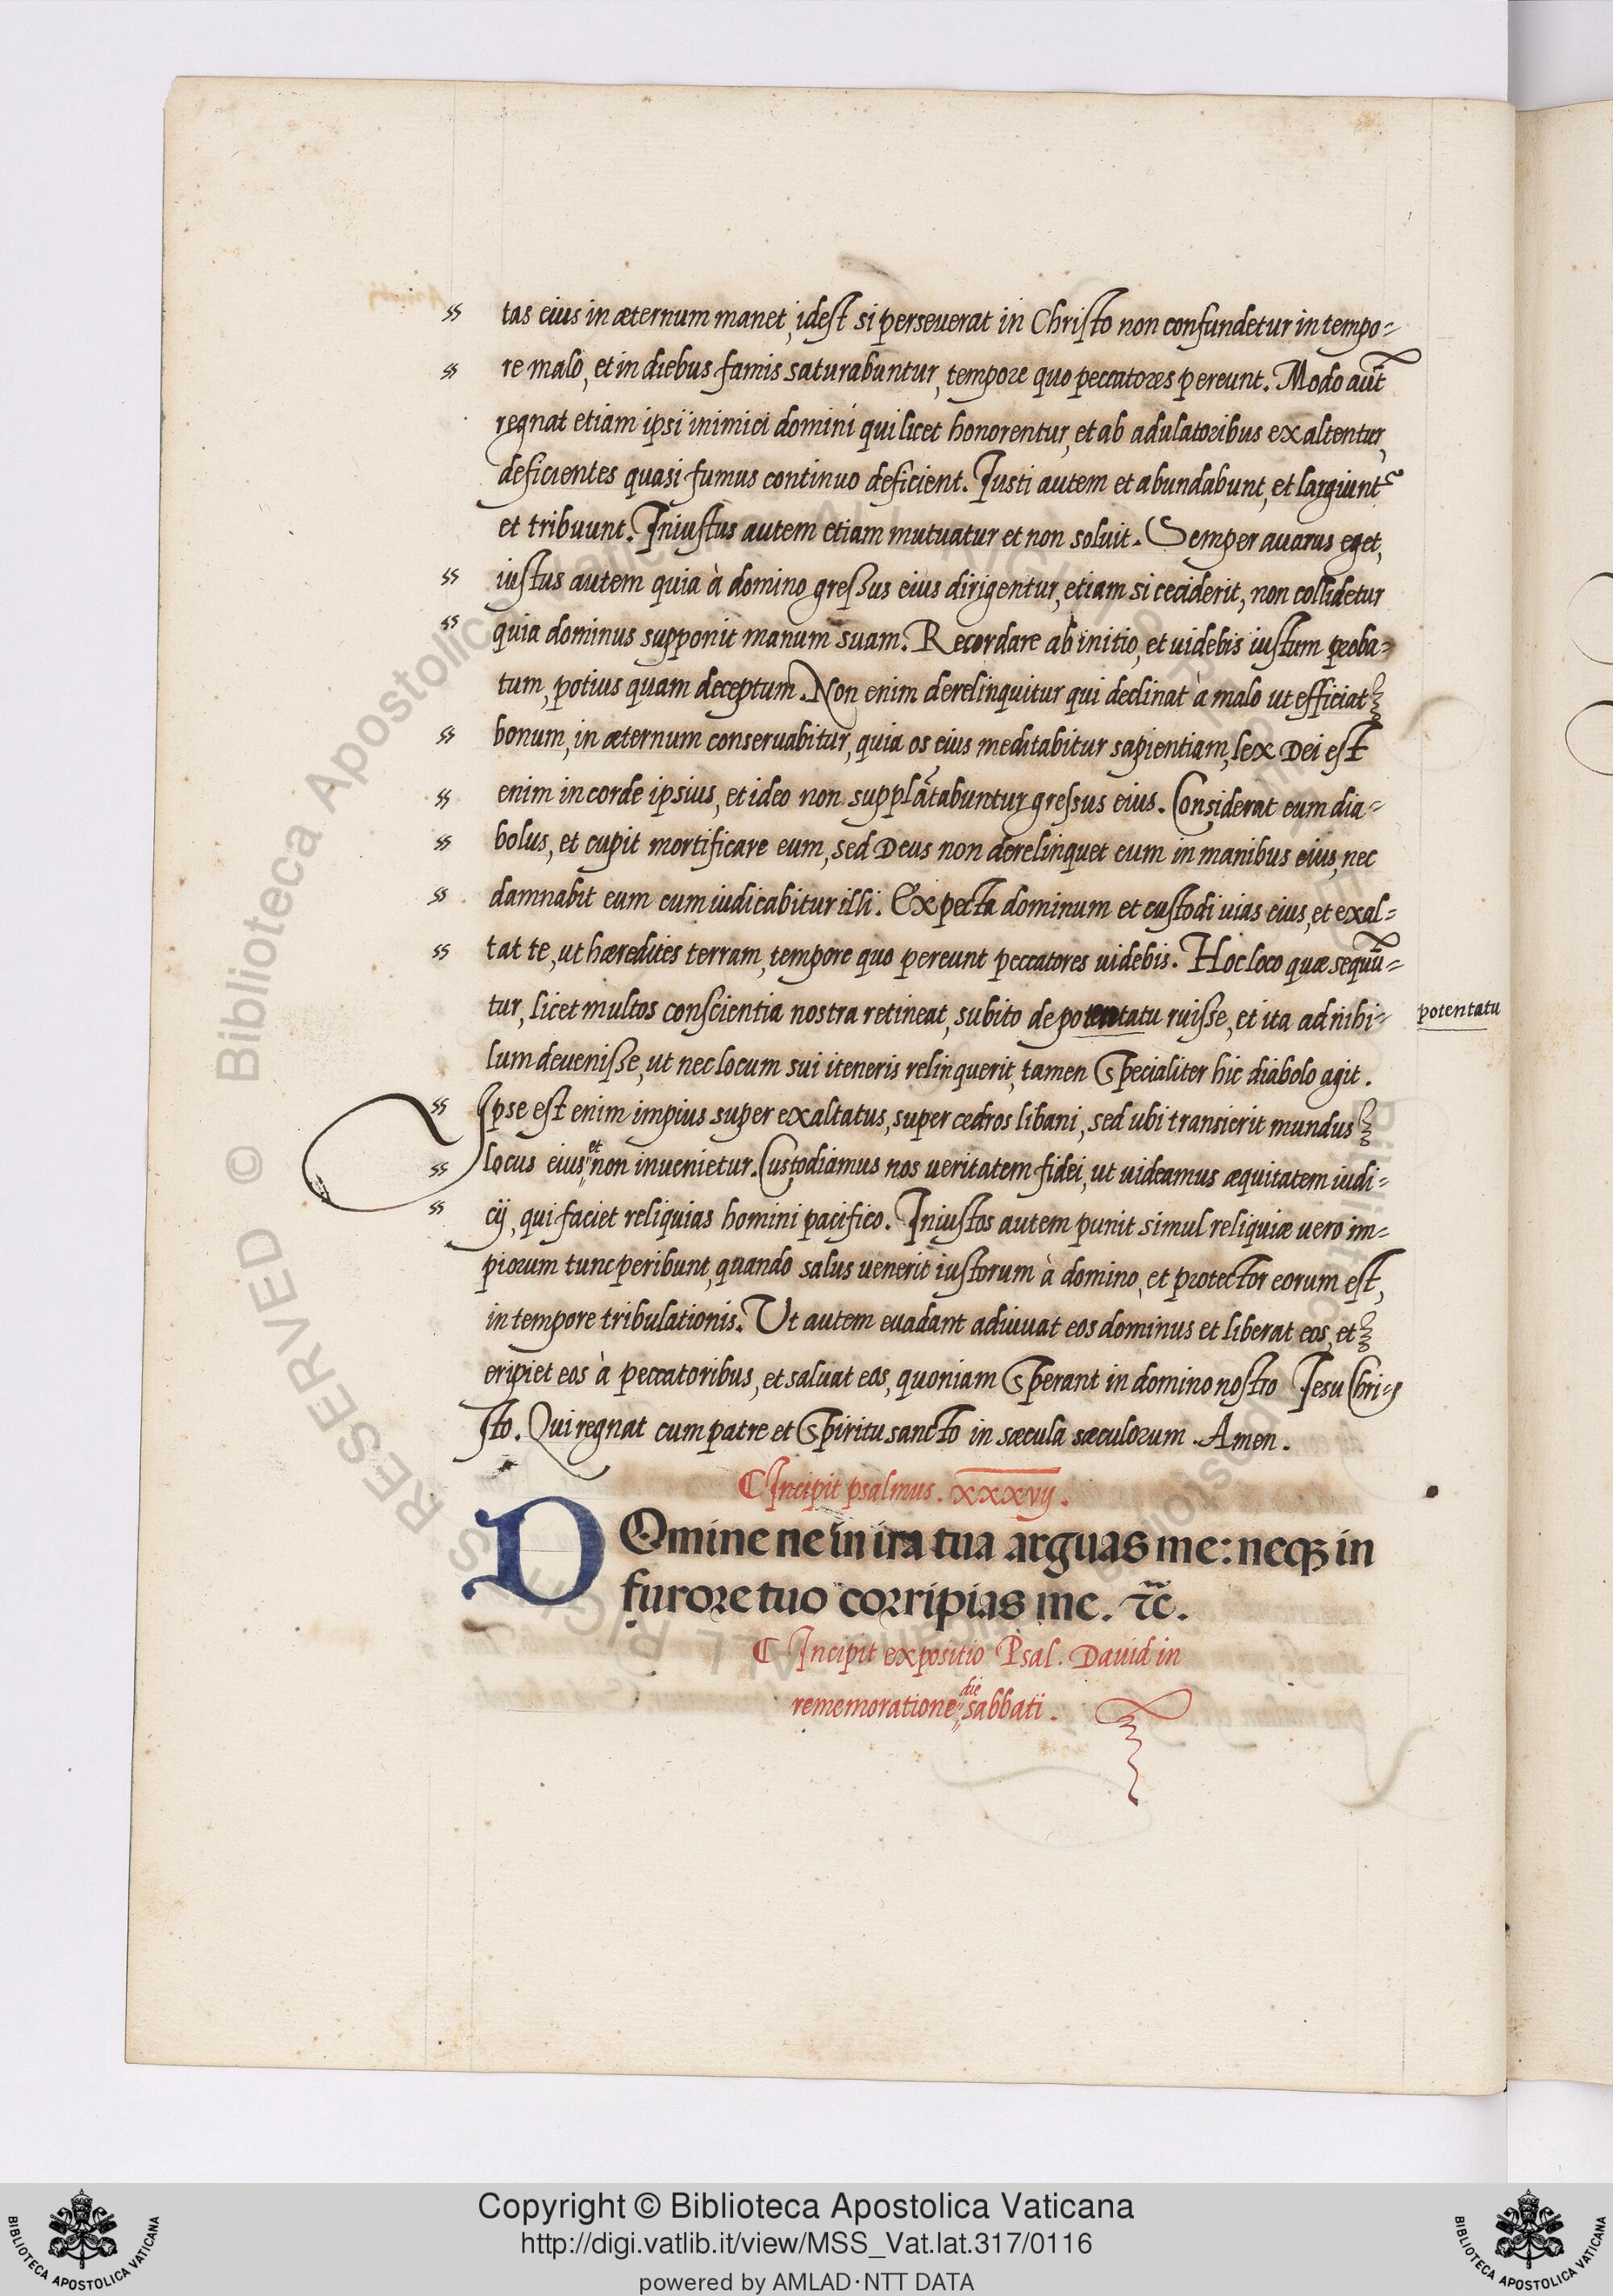 ss tas eius in æternum manet, idest si perseuerat in Christo non confundetur in tempo=
ss re malo, et in diebus famis saturabuntur, tempore quo peccatores pereunt. Modo aut̃
regnat etiam ipsi inimici domini qui licet honorentur, et ab adulatoribus exaltentur,
deficientes quasi fumus continuo deficient. Iusti autem et abundabunt, et largiunt᷑
et tribuunt. Iniustus autem etiam mutuatur et non soluit. Semper auarus eget,
ss iustus autem quia à domino greßus eius dirigentur, etiam si ceciderit, non collidetur
ss quia dominus supponit manum suam. Recordare ab initio, et uidebis iustum proba=
tum, potius quam deceptum. Non enim derelinquitur qui declinat à malo ut efficiat
ss bonum, in æternum conseruabitur, quia os eius meditabitur sapientiam, lex Dei est
ss enim in corde ipsius, et ideo non supplãtabuntur gressus eius. Considerat eum dia=
ss bolus, et cupit mortificare eum, sed Deus non derelinquet eum in manibus eius, nec
ss damnabit eum cum iudicabitur illi. Expecta dominum et custodi uias eius, et exal=
ss tat te, ut hæredites terram, tempore quo pereunt peccatores uidebis. Hoc loco quæ sequũ=
tur, licet multos conscientia nostra retineat, subito de potentatu ruisse, et ita ad nihi= potentatu
lum deuenisse, ut nec locum sui iteneris relinquerit, tamen Specialiter hic diabolo agit.
ss Ipse est enim impius super exaltatus, super cedros libani, sed ubi transierit mundus
et
ss locus eius non inuenietur. Custodiamus nos ueritatem fidei, ut uideamus æquitatem iudi=
ss cij, qui faciet reliquias homini pacifico. Iniustos autem punit simul reliquiæ uero im=
piorum tunc peribunt, quando salus uenerit iustorum à domino, et protector eorum est,
in tempore tribulationis. Ut autem euadant adiuuat eos dominus et liberat eos, et
eripiet eos à peccatoribus, et saluat eos, quoniam Sperant in domino nostro Iesu Chri=
sto. Qui regnat cum patre et Spiritu sancto in sæcula sæculorum. Amen.
Incipit psalmus. xxxvij.
DOmine ne in ira tua arguas me: neqꝫ in
furore tuo corripias me. ⁊c̃.
Incipit expositio Psal. Dauid in
die
rememoratione sabbati.
© Biblioteca Apostolica Vaticana ALL RIGHTS RESERVED
Copyright © Biblioteca Apostolica Vaticana
http://digi.vatlib.it/view/MSS_Vat.lat.317/0116
powered by AMLAD·NTT DATA
BIBLIOTECA APOSTOLICA VATICANA
BIBLIOTECA APOSTOLICA VATICANA